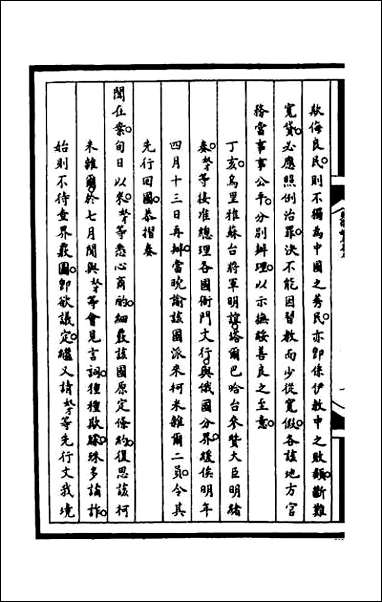 欺侮良民。則不獨為中國之莠民。亦即係伊教中之敗類。斷難
寬貸。必應照例治罪。決不能因習教而少從寬假。各該地方官
務當事事公平。分別辦理。以示撫綏善良之至意。
丁亥。烏里雅蘇台將軍明誼。塔爾巴哈台參贊大臣明緒
奏。奴才等接准總理各國衙門文行。與俄國分界。緩俟明年
四月十三日再辦。當曉諭該國派來柯米雜爾二員。令其
先行回國。恭摺奏
聞在案。旬日以來。奴才等悉心商酌。細覈該國原定條約。復思該柯
米雜爾。於七月間與奴才等會見言詞。種種欺矇。殊多譎詐。
始則不待查界覈圖。即欲議定。繼又請奴才等先行文我境